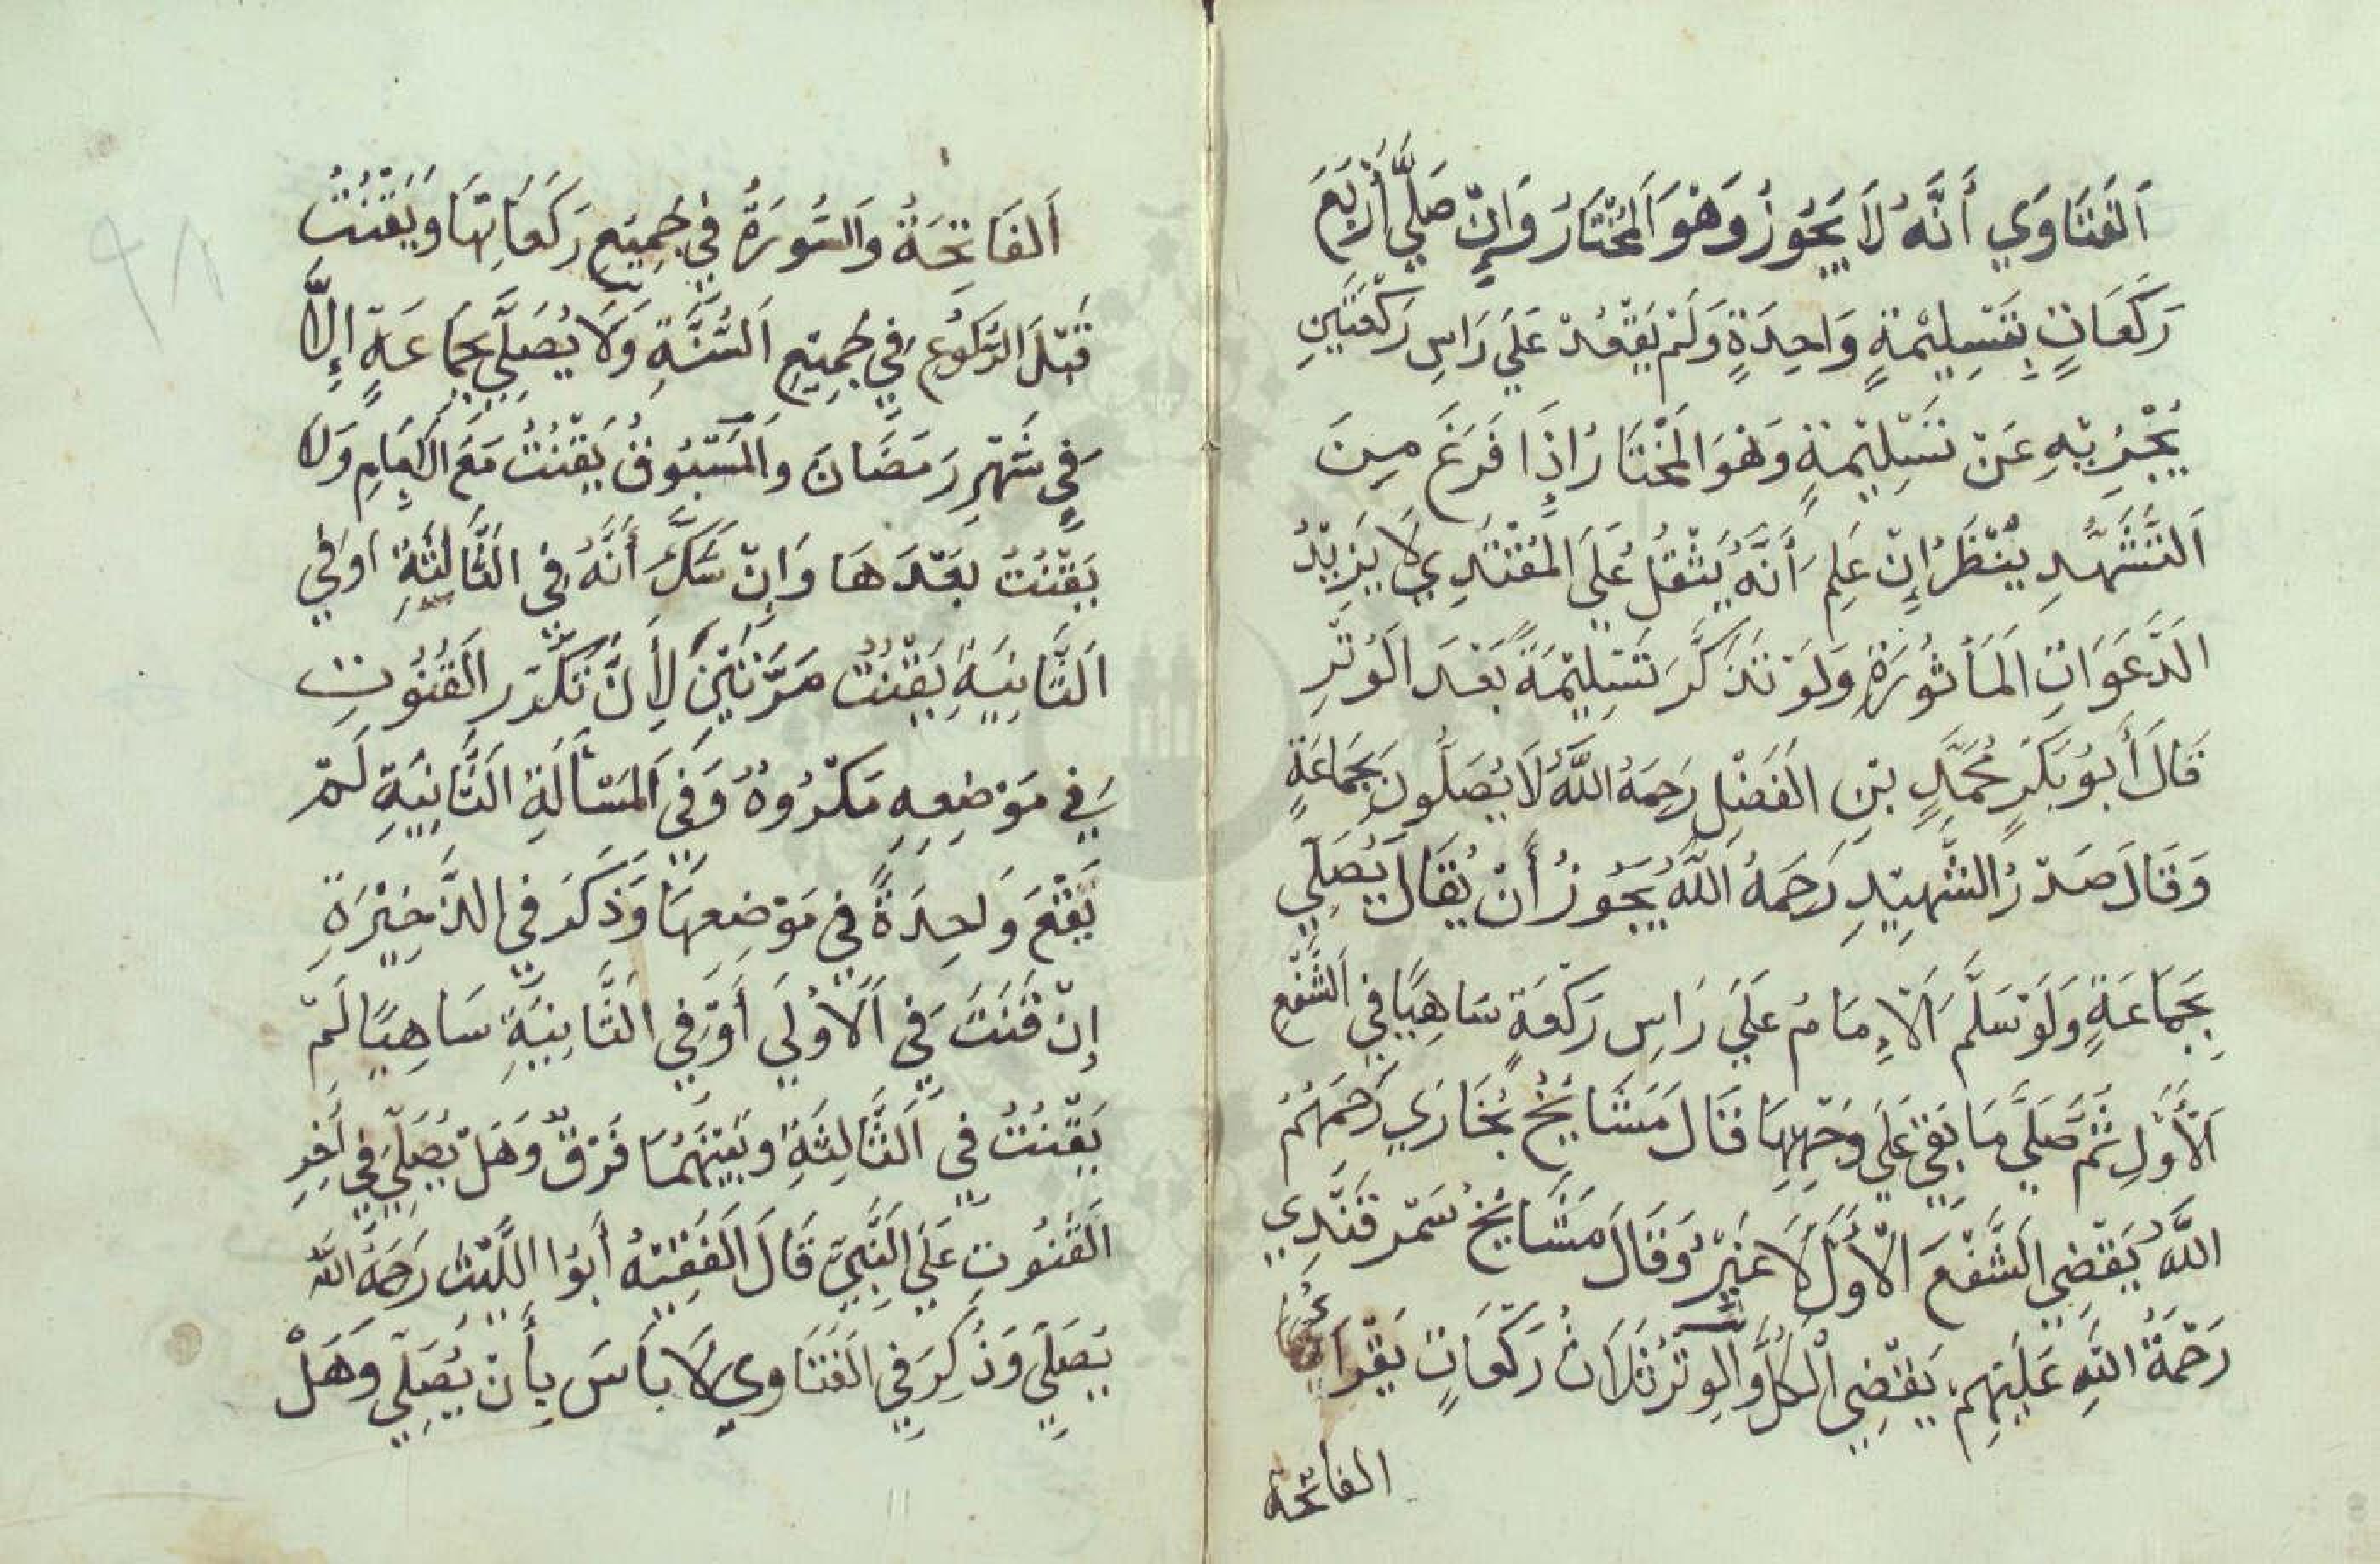 اَلفَتَاوَي أَنَّهُ لَا يَجُوزُ وَهْوَ اَلمُخْتَارُ وَإِنْ صَلَّي أَرْبَعَ
رَكَعَاتٍ بِتَسْلِيْمَةٍ وَاحِدَةٍ وَلَمْ يَقْعُدْ عَلَي رَاسِ رَكْعَتَيْنِ
يُجْزِيْهِ عَنْ تَسْلِيْمَةٍ وَهُوَ المُخْتَارُ إِذَا فَرَغَ مِنَ
اَلتَّشَهُّدِ يَنْظُرُ إِنْ عَلِمَ أَنَّهُ يَثْقُلُ عَلَي المُقْتَدِي لَا يَزِيْدُ
الدَّعَوَاتِ المَأْثُورَةِ وَلَوْ تَذَكَّرَ تَسْلِيْمَةً بَعْدَ الوِتْرِ
قَالَ أَبُو بَكْرٍ مُحَمَّدٍ بْنِ الفَضْلِ رَحِمَهُ اللَّهُ لَا يُصَلُّونَ بِجَمَاعَةٍ
وَقَالَ صَدْرُ الشَّهِيْدِ رَحِمَهُ اللَّهُ يَجُوزُ أَنْ يُقَالَ يُصَلِّي
بِجَمَاعَةٍ وَلَوْ سَلَّمَ اَلْإِمَامُ عَلَي رَاسِ رَكْعَةٍ سَاهِيًا فِي الشَّفْعِ
اَلْأَوَّلِ ثُمَّ صَلَّي مَا بَقِيَ عَلَي وَجْهِهَا قَالَ مَشَايِخُ بُخَارَي رَحِمَهُمُ
اللَّهُ يَقْضِي الشَّفْعَ الْأَوَّلَ لَا غَيْرُ وَقَالَ مَشَايِخُ سَمَرْقَنْدِي
رَحْمَةُ اللَّهِ عَلَيْهِمْ يَقْضِي الْكُلَّ وَالوِتْرُ ثَلَاثُ رَكْعَاتٍ يَقْرَا
الفاتحة
اَلفَاتِحَةُ وَالسُّورَةُ فِي جَمِيْعِ رَكَعَاتِهَا وَيَقْنُتُ
قَبْلَ الرُّكُوعِ فِي جَمِيْعِ اَلسُّنَّةِ وَلَا يُصَلِّي بِجَمَاعَةٍ إِلَّا
فِي شَهْرِ رَمَضَانَ وَالمَسْبُوقُ يَقْنُتُ مَعَ الْاِمَامِ وَلَا
يَقْنُتُ بَعْدَهَا وَإِنْ شَكَّ أَنَّهُ فِي الثَّالِثَةِ اَوْ فِي
اَلثَّانِيَةِ يَقْنُتُ مَرَّتَيْنِ لِأَنَّ تَكَرُّرَ القُنُوتِ
فِي مَوْضِعِهِ مَكْرُوهٌ وَفِي المَسْأَلَةِ الثَّانِيَةِ لَمْ
يَقَعْ وَاحِدَةً فِي مَوْضِعِهَا وَذَكَرَ فِي الذَّخِيْرَةِ
إِنْ قَنَتَ فِي اَلْأُولَي أَوْ فِي الثَّانِيَةِ سَاهِيًا لَمْ
يَقْنُتْ فِي اَلثَّالِثَةِ وَبَيْنَهُمَا فَرْقٌ وَهَلْ يُصَلِّي فِي أَخِرِ
اَلقُنُوتِ عَلَي النَّبِيِّ قَالَ الفَقِيْهُ أَبُوا اللَّيْثِ رَحِمَهُ اللَّهُ
يُصَلِّي وَذُكِرَ فِي الفَتَاوِي لَا بَأسَ بِأَنْ يُصَلِّي وَهَلْ